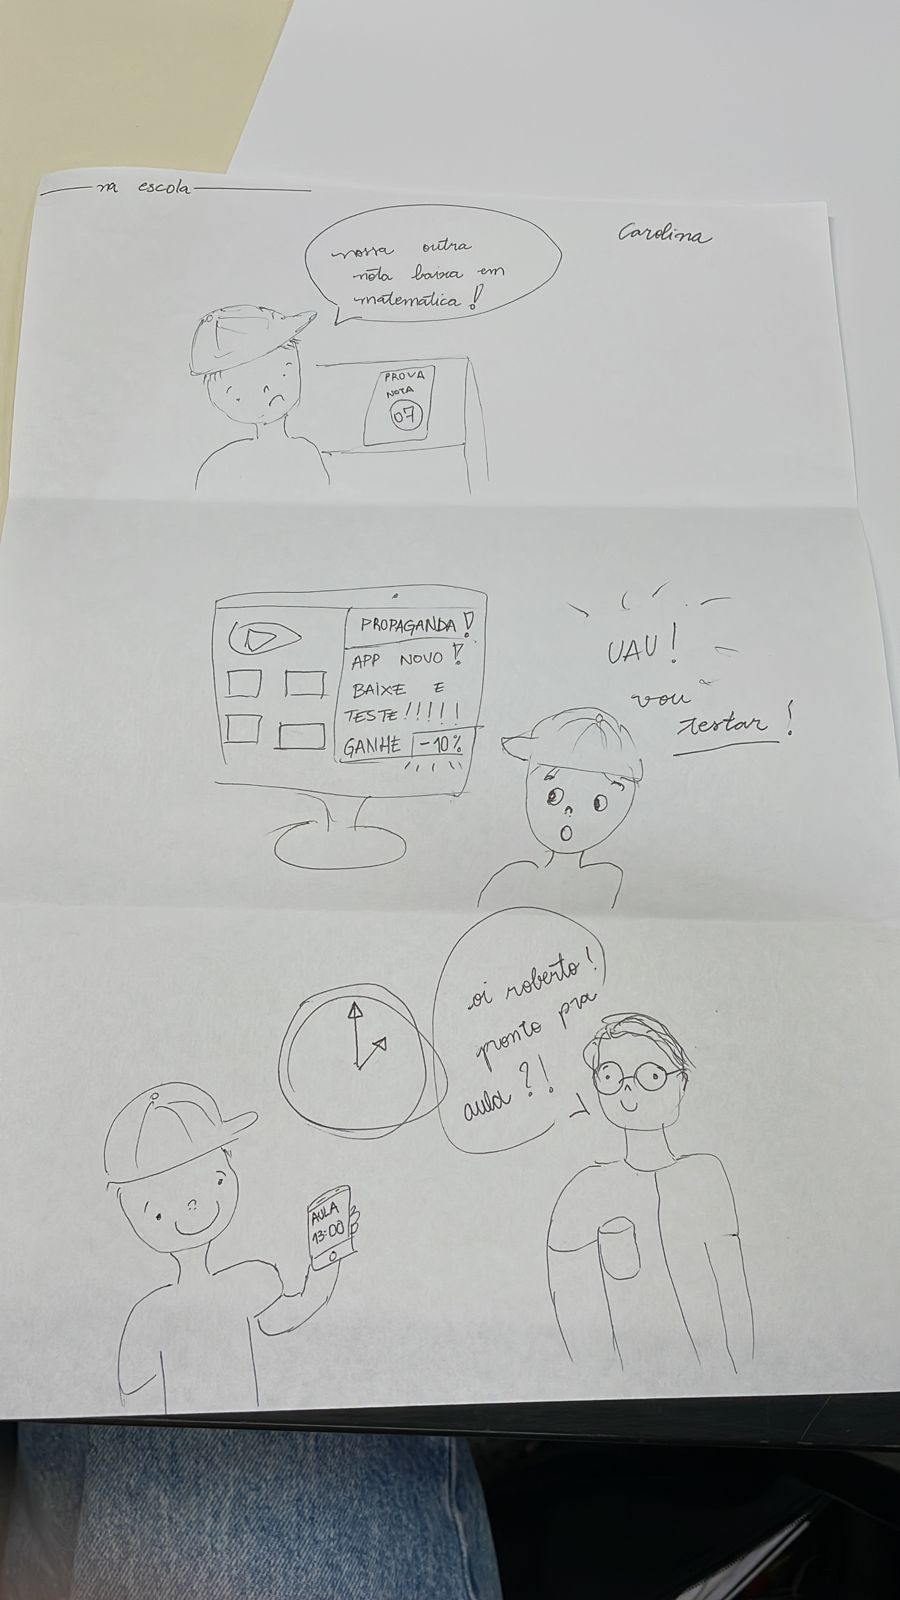 na escola
Carolina
nossa outra
nota baixa em
matemática!
PROVA
NOTA
07
PROPAGANDA!
APP NOVO!
BAIXE E
TESTE!!!!!
GANHE -10%
UAU!
vou
testar!
oi roberto!
pronto pra
aula?!
AULA
13:00